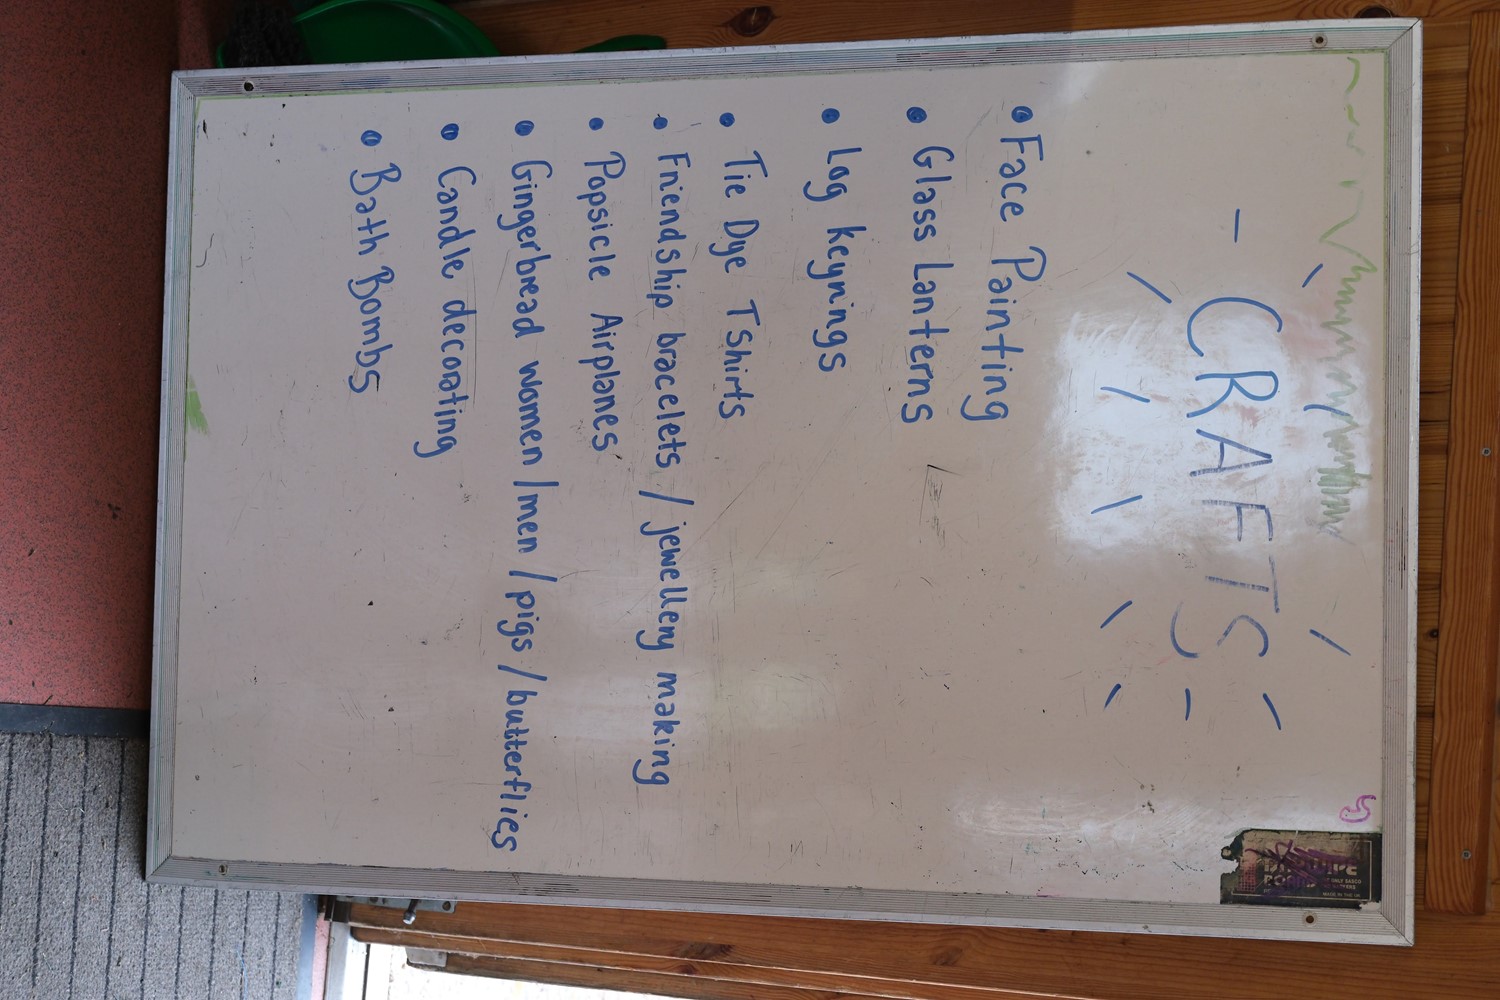 - CRAFTS -
• Face Painting
• Glass Lanterns
• Log keyrings
• Tie Dye TShirts
• Friendship bracelets / jewellery making
• Popsicle Airplanes
• Gingerbread women /men / pigs / butterflies
• Candle decorating
• Bath Bombs